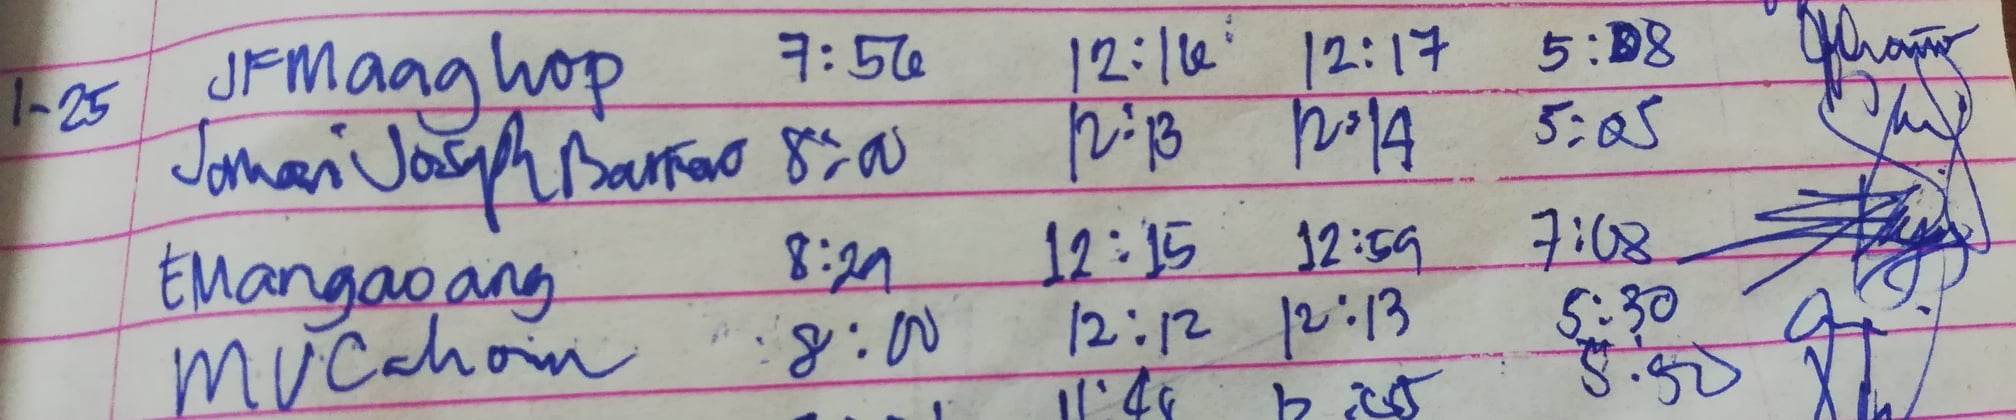 JFMaaghop 7:56 12:16 12:17 5:08
1-25
Jomari Joseph Barrao 8:00 12:13 12:14 5:05
EMangaoang 8:29 12:15 12:59 7:08
MVCahoin 8:00 12:12 12:13 5:30
5:50